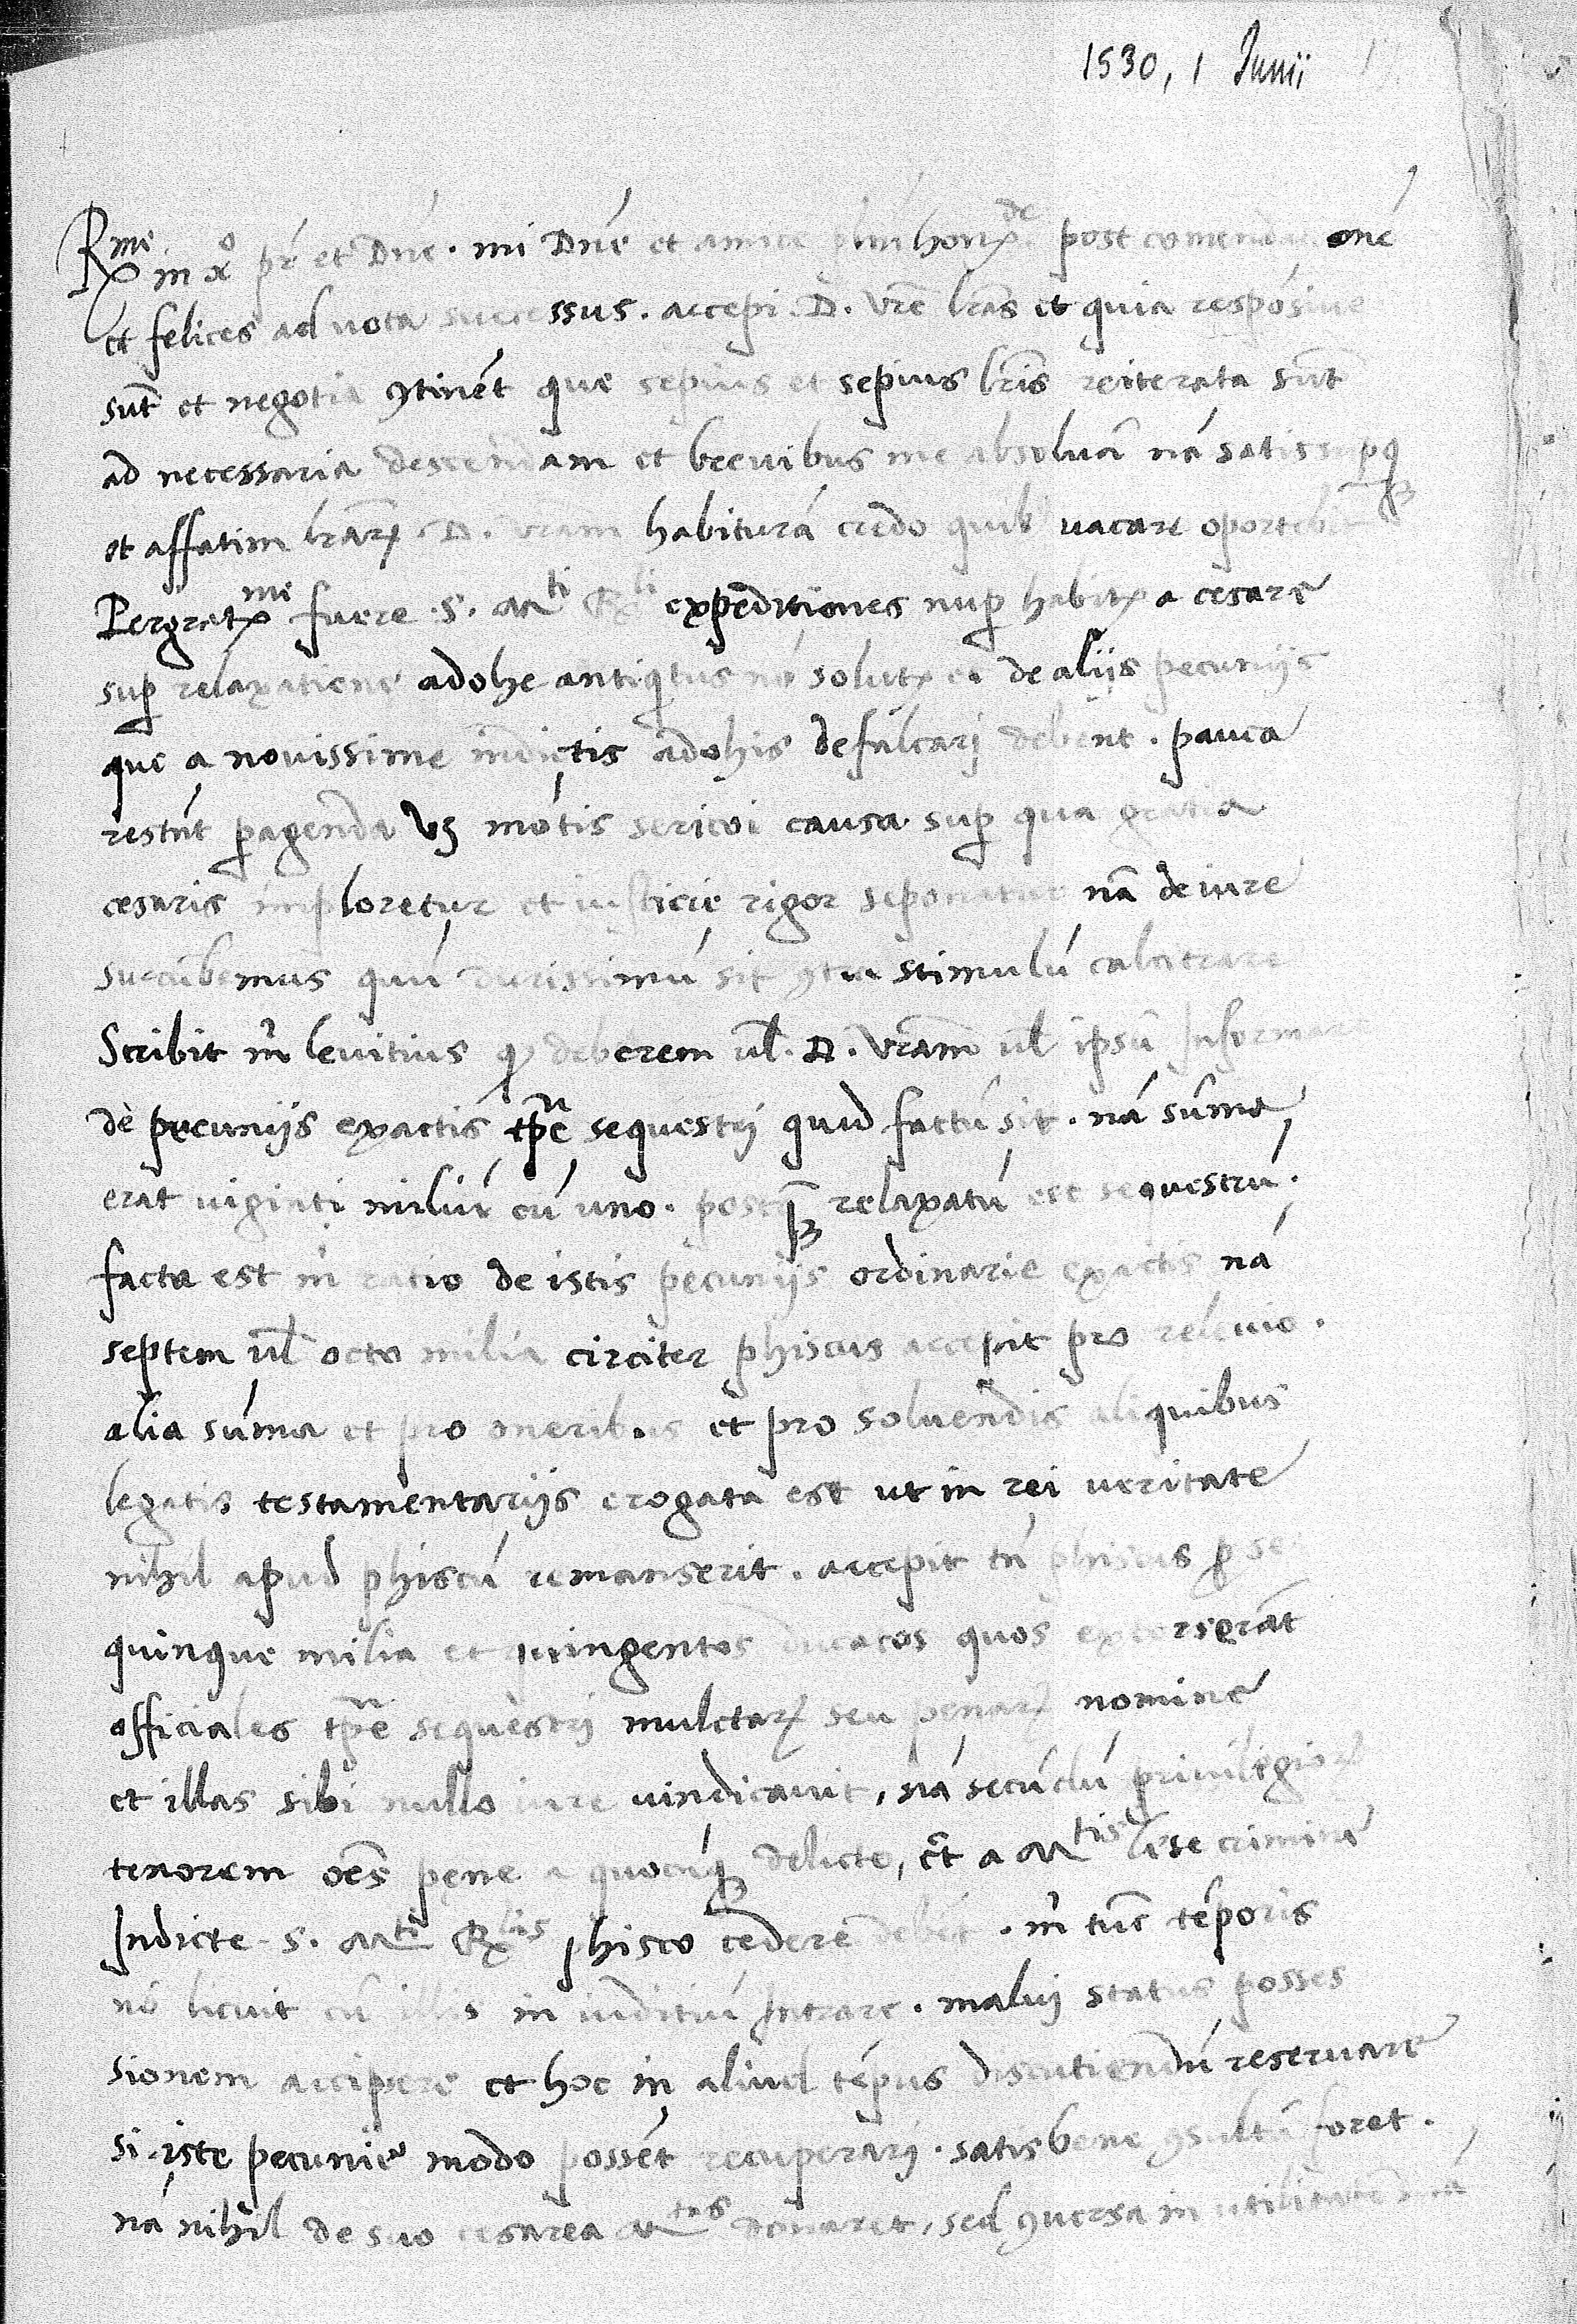 1530, 1 Junii
R.me in xo pr et Dne. mi Dne et amice plm honx.de post comendat onē
et felices ad vota successus. accepi. D. vrē lrās et quia respōsive
sūt et negotia 9tinēt que sepius et sepius lris reiterata sūt
ad necessaria descendam et brevibus me absoluā nā satis supq3
et affatim lrarꝝ D. vram habiturā credo quib vacare oportebi
Pergratx.me fuere S. M.ti R.li expeditiones nup habitx a cesare
sup relaxatione adohe antiqitus nō solutx et de aliis pecuniis
que a novissime indictis adohis defalcari debent. pauca
restāt pagenda vꝫ mōtis sericoi causa sup qua gratia
cesaris imploretur et iusticie rigor seponatur nā de iure
sucūbemus quū durissimū sit 9tra stimulū calcitrare
Scribit m levitius q deberem vl. D. vram vl ipsū Informa
de pecuniis exactis tpe sequestri quid factū sit. nā sūma
erat viginti miliū cū uno. postq3 relaxatū est sequestrū.
facta est m ratio de istis pecuniis ordinarie exactis nā
septem vl octo milia circiter phiscus accepit pro relevio.
alia sūma et pro oneribus et pro solvendis aliquibus
legatis testamentariis erogata est ut in rei veritate
nihil apud phiscū remanserit. accepit tn phiscus p se
quinque milia et quingentos ducatos quos extorserāt
officiales tpe sequestri mulctarꝝ seu penarꝝ nomine
et illas sibi nullo iure vindicavit, nā secūdū privilegiorꝝ
tenorem oēs pene a quocūq3 delicto, et a M.tis lese crimine
Indicte S. M.ti R.lis phisco cedere debēt. m tūc tēporis
nō licuit cū illis in iuditiū Intrare. malui status posses
sionem accipere et hoc in aliud tēpus discutiendū reservare
si iste pecunie modo possēt recuperari. satis bene 9sultū foret.
nā nihil de suo cesarea M.tas donaret, sed 9versa in utilitatē